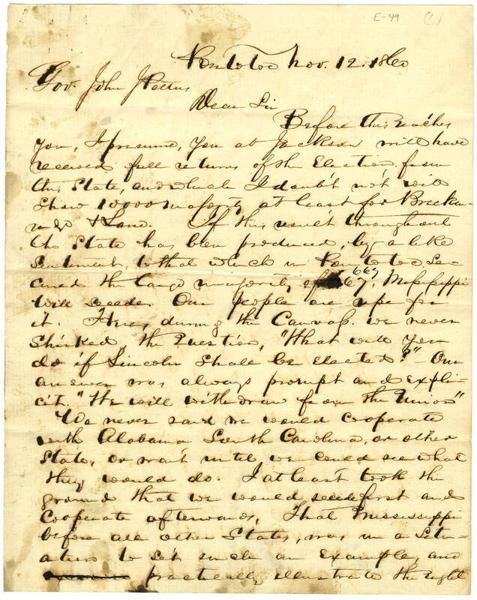 E-49 (1)
Pontotoc Nov. 12. 1860
Gov. John J Pettus
Dear Sir
Before this reaches
you, I presume, you at Jackson will have
received full returns of the Election, from
this State, and which I doubt not will
show 10000 majority at least for Brecken
& Lane. If this result throughout
the State has been produced, by a like
sentiment, to that which in Pontotoc se-
cured the large majority of 667, Mississippi
will secede. Our people are ripe for
it. Here, during the Canvass we never
shirked, the question, "What will you
do if Lincoln shall be elected?" Our
answer was always prompt and expli-
cit, "We will withdraw from the Union"
We never said we would cooperate
with Alabama South Carolina, or other
State, or wait until we could see what
they would do. I at least took the
ground that we would secede first and
cooperate afterwards, That Mississippi
before all other States, was in a situ-
ation to set such an example, and
practically illustrate the right